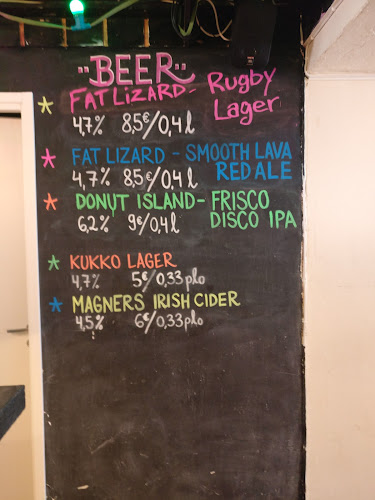 "BEER"
FAT LIZARD - Rugby
Lager
4,7% 8,5€/0,4l
FAT LIZARD - SMOOTH LAVA
RED ALE
4,7% 8,5€/0,4l
DONUT ISLAND - FRISCO
DISCO IPA
6,2% 9€/0,4l
KUKKO LAGER
4,7% 5€/0,33 plo
MAGNERS IRISH CIDER
4,5% 6€/0,33 plo